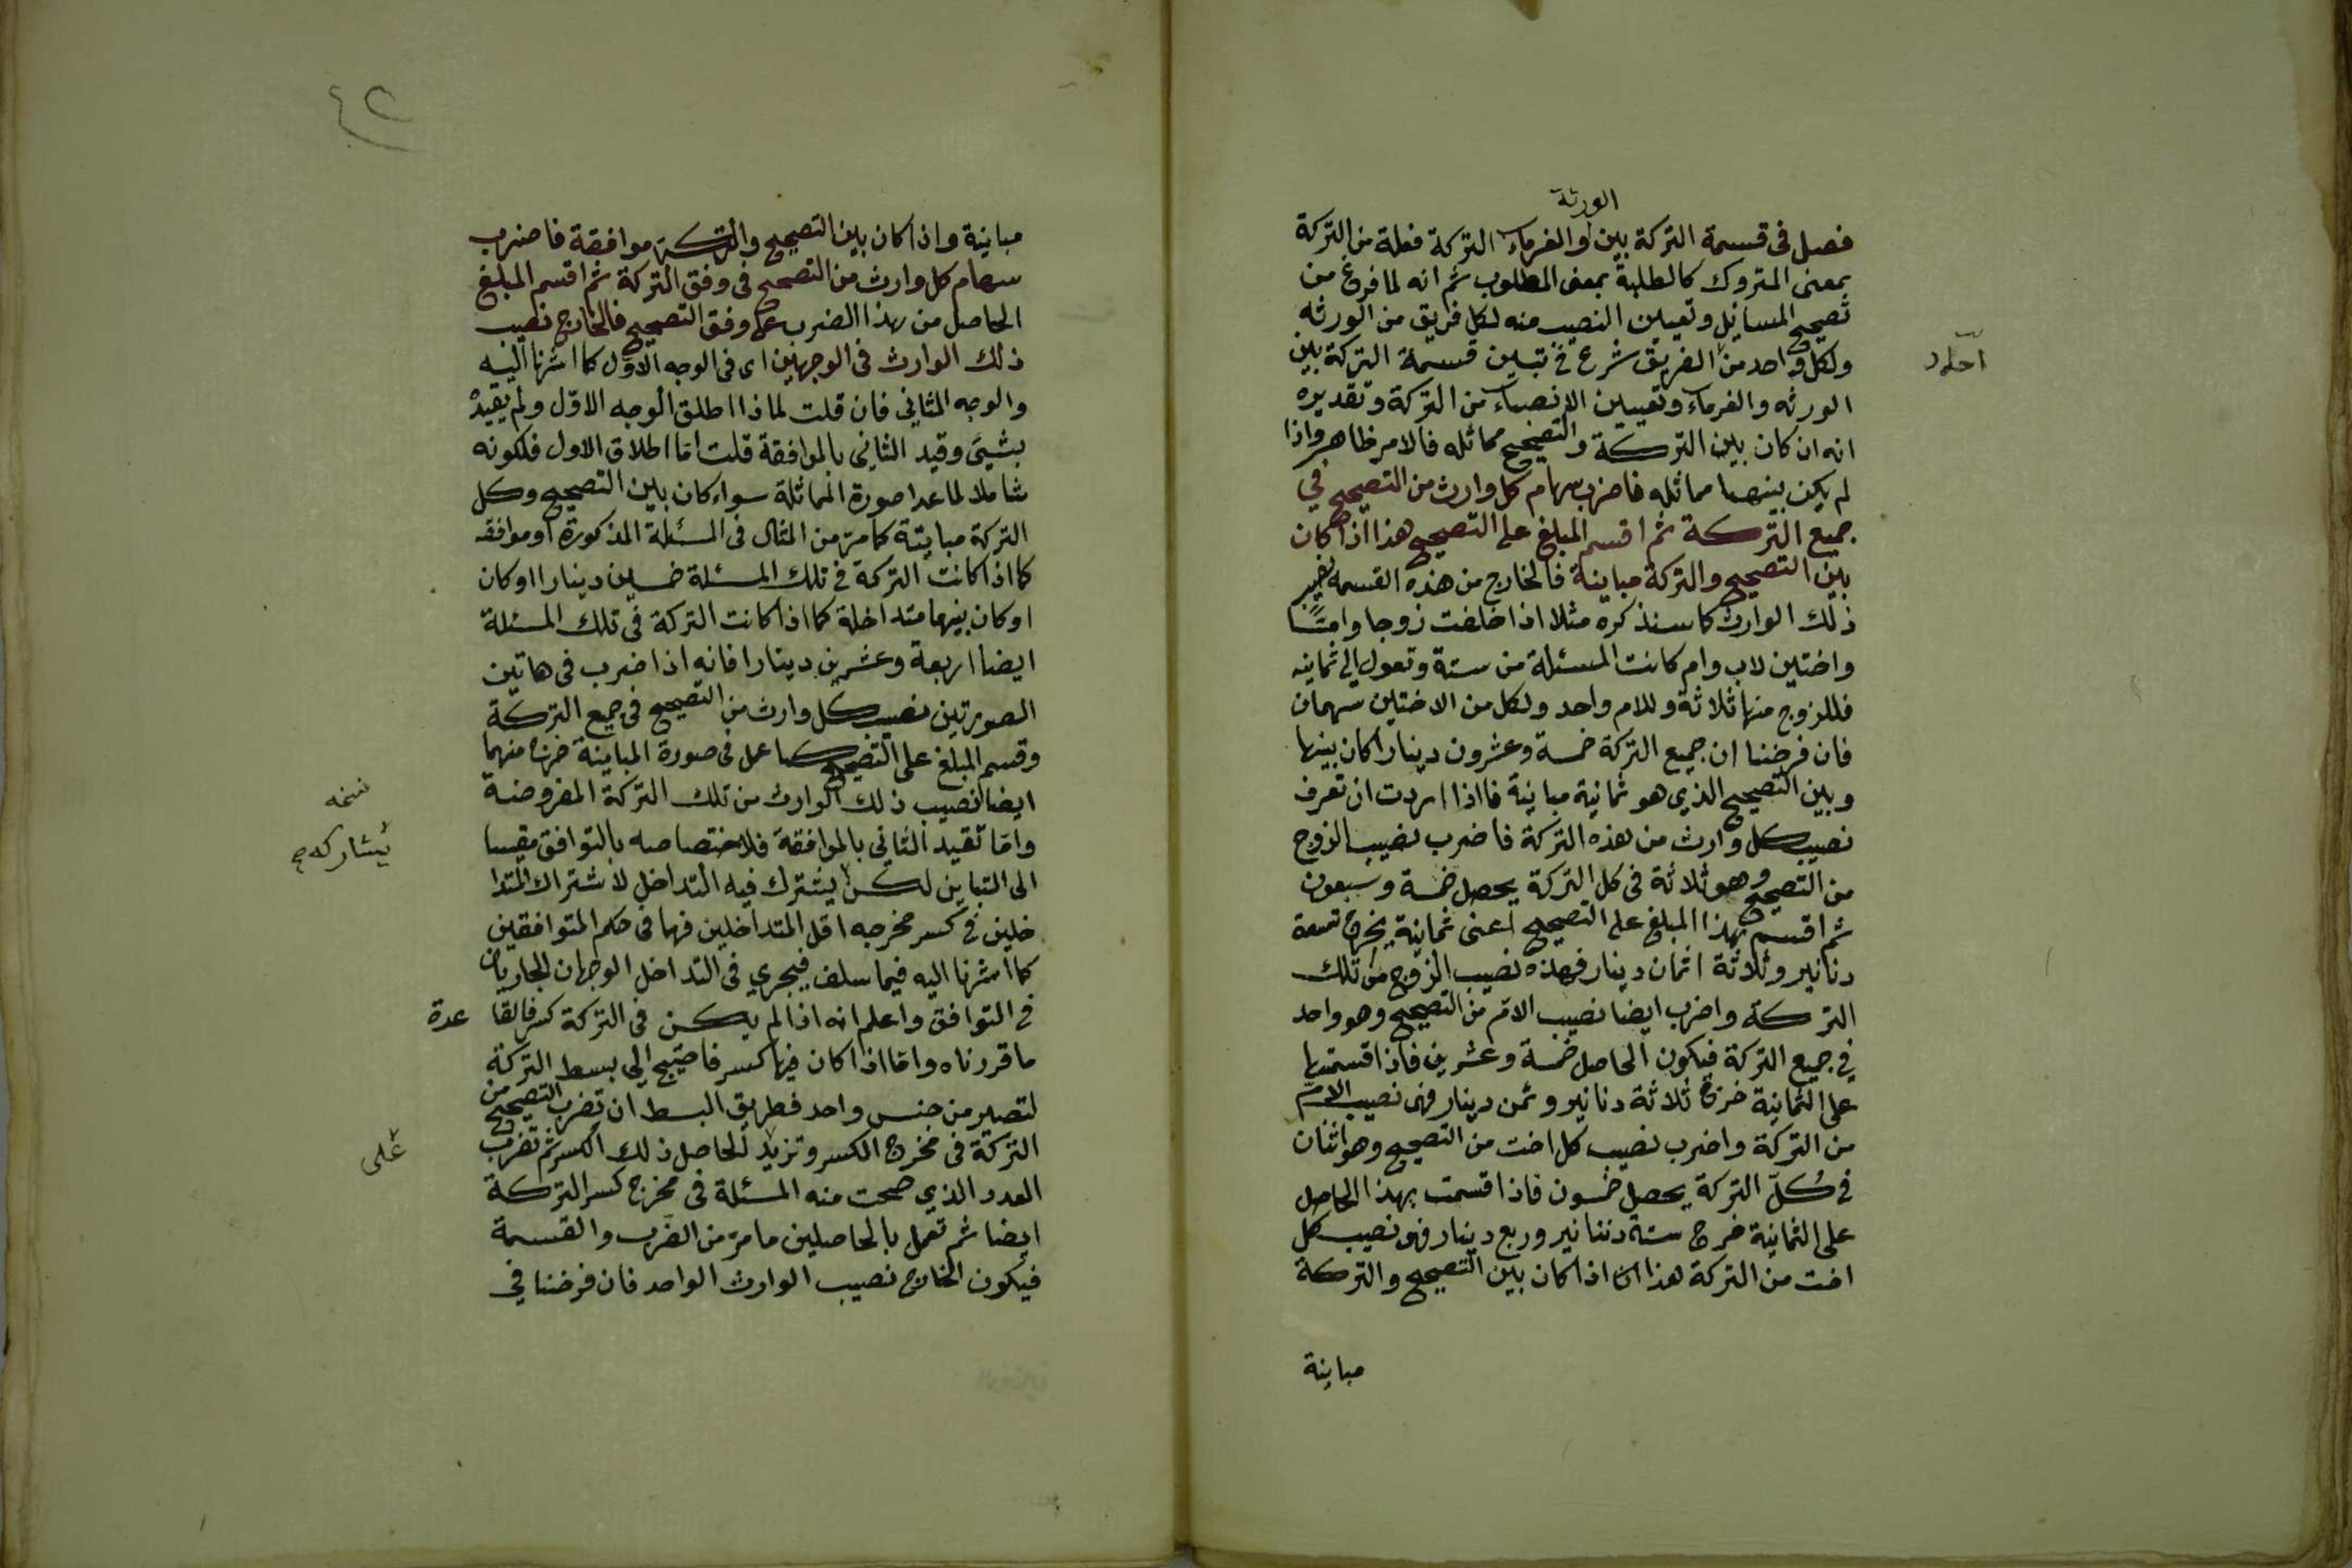 الورثة
فصل في قسمة التركة بين والغرماء التركة فعلة من التركة
بمعنى المتروك كالطلبة بمعنى المطلوب ثم انه لما فرغ من
تصحيح المسائل وتعيين النصيب منه لكل فريق من الورثه
ولكل واحد من الفريق شرع في تبيين قسمة التركة بين
احاد
الورثه والغرماء وتعيين الانصباء من التركة وتقديره
انه ان كان بين التركة والتصحيح مماثله فالامر ظاهر واذا
لم يكن بينهما مماثله فاضرب سهام كل وارث من التصحيح في
جميع التركة ثم اقسم المبلغ على التصحيح هذا اذا كان
بين التصحيح والتركة مباينة فالخارج من هذه القسمه نصيب
ذلك الوارث كما سنذكره مثلا اذا خلفت زوجا واما
واختين لاب وام كانت المسئلة من ستة وتعول الى ثمانيه
فللزوج منها ثلاثة وللام واحد ولكل من الاختين سهمان
فان فرضنا ان جميع التركة خمسة وعشرون دينارا كان بينها
وبين التصحيح الذي هو ثمانية مباينة فاذا اردت ان تعرف
نصيب كل وارث من هذه التركة فاضرب نصيب الزوج
من التصحيح وهو ثلاثة في كل التركة يحصل خمسة وسبعون
ثم اقسم هذا المبلغ على التصحيح اعنى ثمانية يخرج تسعة
دنانير وثلاثة اثمان دينار فهذه نصيب الزوج من تلك
التركة واضرب ايضا نصيب الام من التصحيح وهو واحد
في جميع التركة فيكون الحاصل خمسة وعشرين فاذا قسمتها
على الثمانية خرج ثلاثة دنانير وثمن دينار فهى نصيب الام
من التركة واضرب نصيب كل اخت من التصحيح وهو اثنان
في كل التركة يحصل خمسون فاذا قسمت بهذا الحاصل
على الثمانية خرج ستة دننانير وربع دينار فهى نصيب كل
اخت من التركة هذا اذا كان بين التصحيح والتركة
مباينة
٤٢
مباينة واذا كان بين التصحيح والتركة موافقة فاضرب
سهام كل وارث من التصحيح في وفق التركة ثم اقسم المبلغ
الحاصل من هذا الضرب على وفق التصحيح فالخارج نصيب
ذلك الوارث في الوجهين اى في الوجه الاول كما اشرنا اليه
والوجه الثاني فان قلت لماذا اطلق الوجه الاول ولم يقيده
بشيئ وقيد الثاني بالموافقة قلت اما اطلاق الاول فلكونه
شاملا لما عدا صورة المماثلة سواء كان بين التصحيح وكل
التركة مباينة كما مر من المثال في المسئلة المذكورة او موافقه
كما اذا كانت التركة في تلك المسئلة خمسين دينارا او كان
او كان بينهما متداخلة كما اذا كانت التركة في تلك المسئلة
ايضا اربعة وعشرين دينارا فانه اذا ضرب في هاتين
الصورتين نصيب كل وارث من التصحيح في جميع التركة
وقسم المبلغ على التصحيح كما عمل في صورة المباينة خرج منهما
ايضا نصيب ذلك الوارث من تلك التركة المفروضة
نسخه
واما تقييد الثاني بالموافقة فلاختصاصه بالتوافق مقيسا
يشاركه
الى التباين لكن يشترك فيه التداخل لاشتراك المتدا
خلين في كسر مخرجه اقل المتداخلين فهما في حكم المتوافقين
كما اشرنا اليه فيما سلف فيجري في التداخل الوجهان الجاريان
في التوافق واعلم انه اذا لم يكن في التركة كسر فالقا عدة
ما قررناه واما اذا كان فيها كسر فاحتيج الى بسط التركة
لتصير من جنس واحد فطريق البسط ان تضرب التصحيح من
التركة في مخرج الكسر وتزيد الحاصل ذلك الكسر ثم تضرب
على
العدد الذي صحت منه المسئلة في مخرج كسر التركة
ايضا ثم تعمل بالحاصلين ما مر من الضرب والقسمة
فيكون الخارج نصيب الوارث الواحد فان فرضنا في